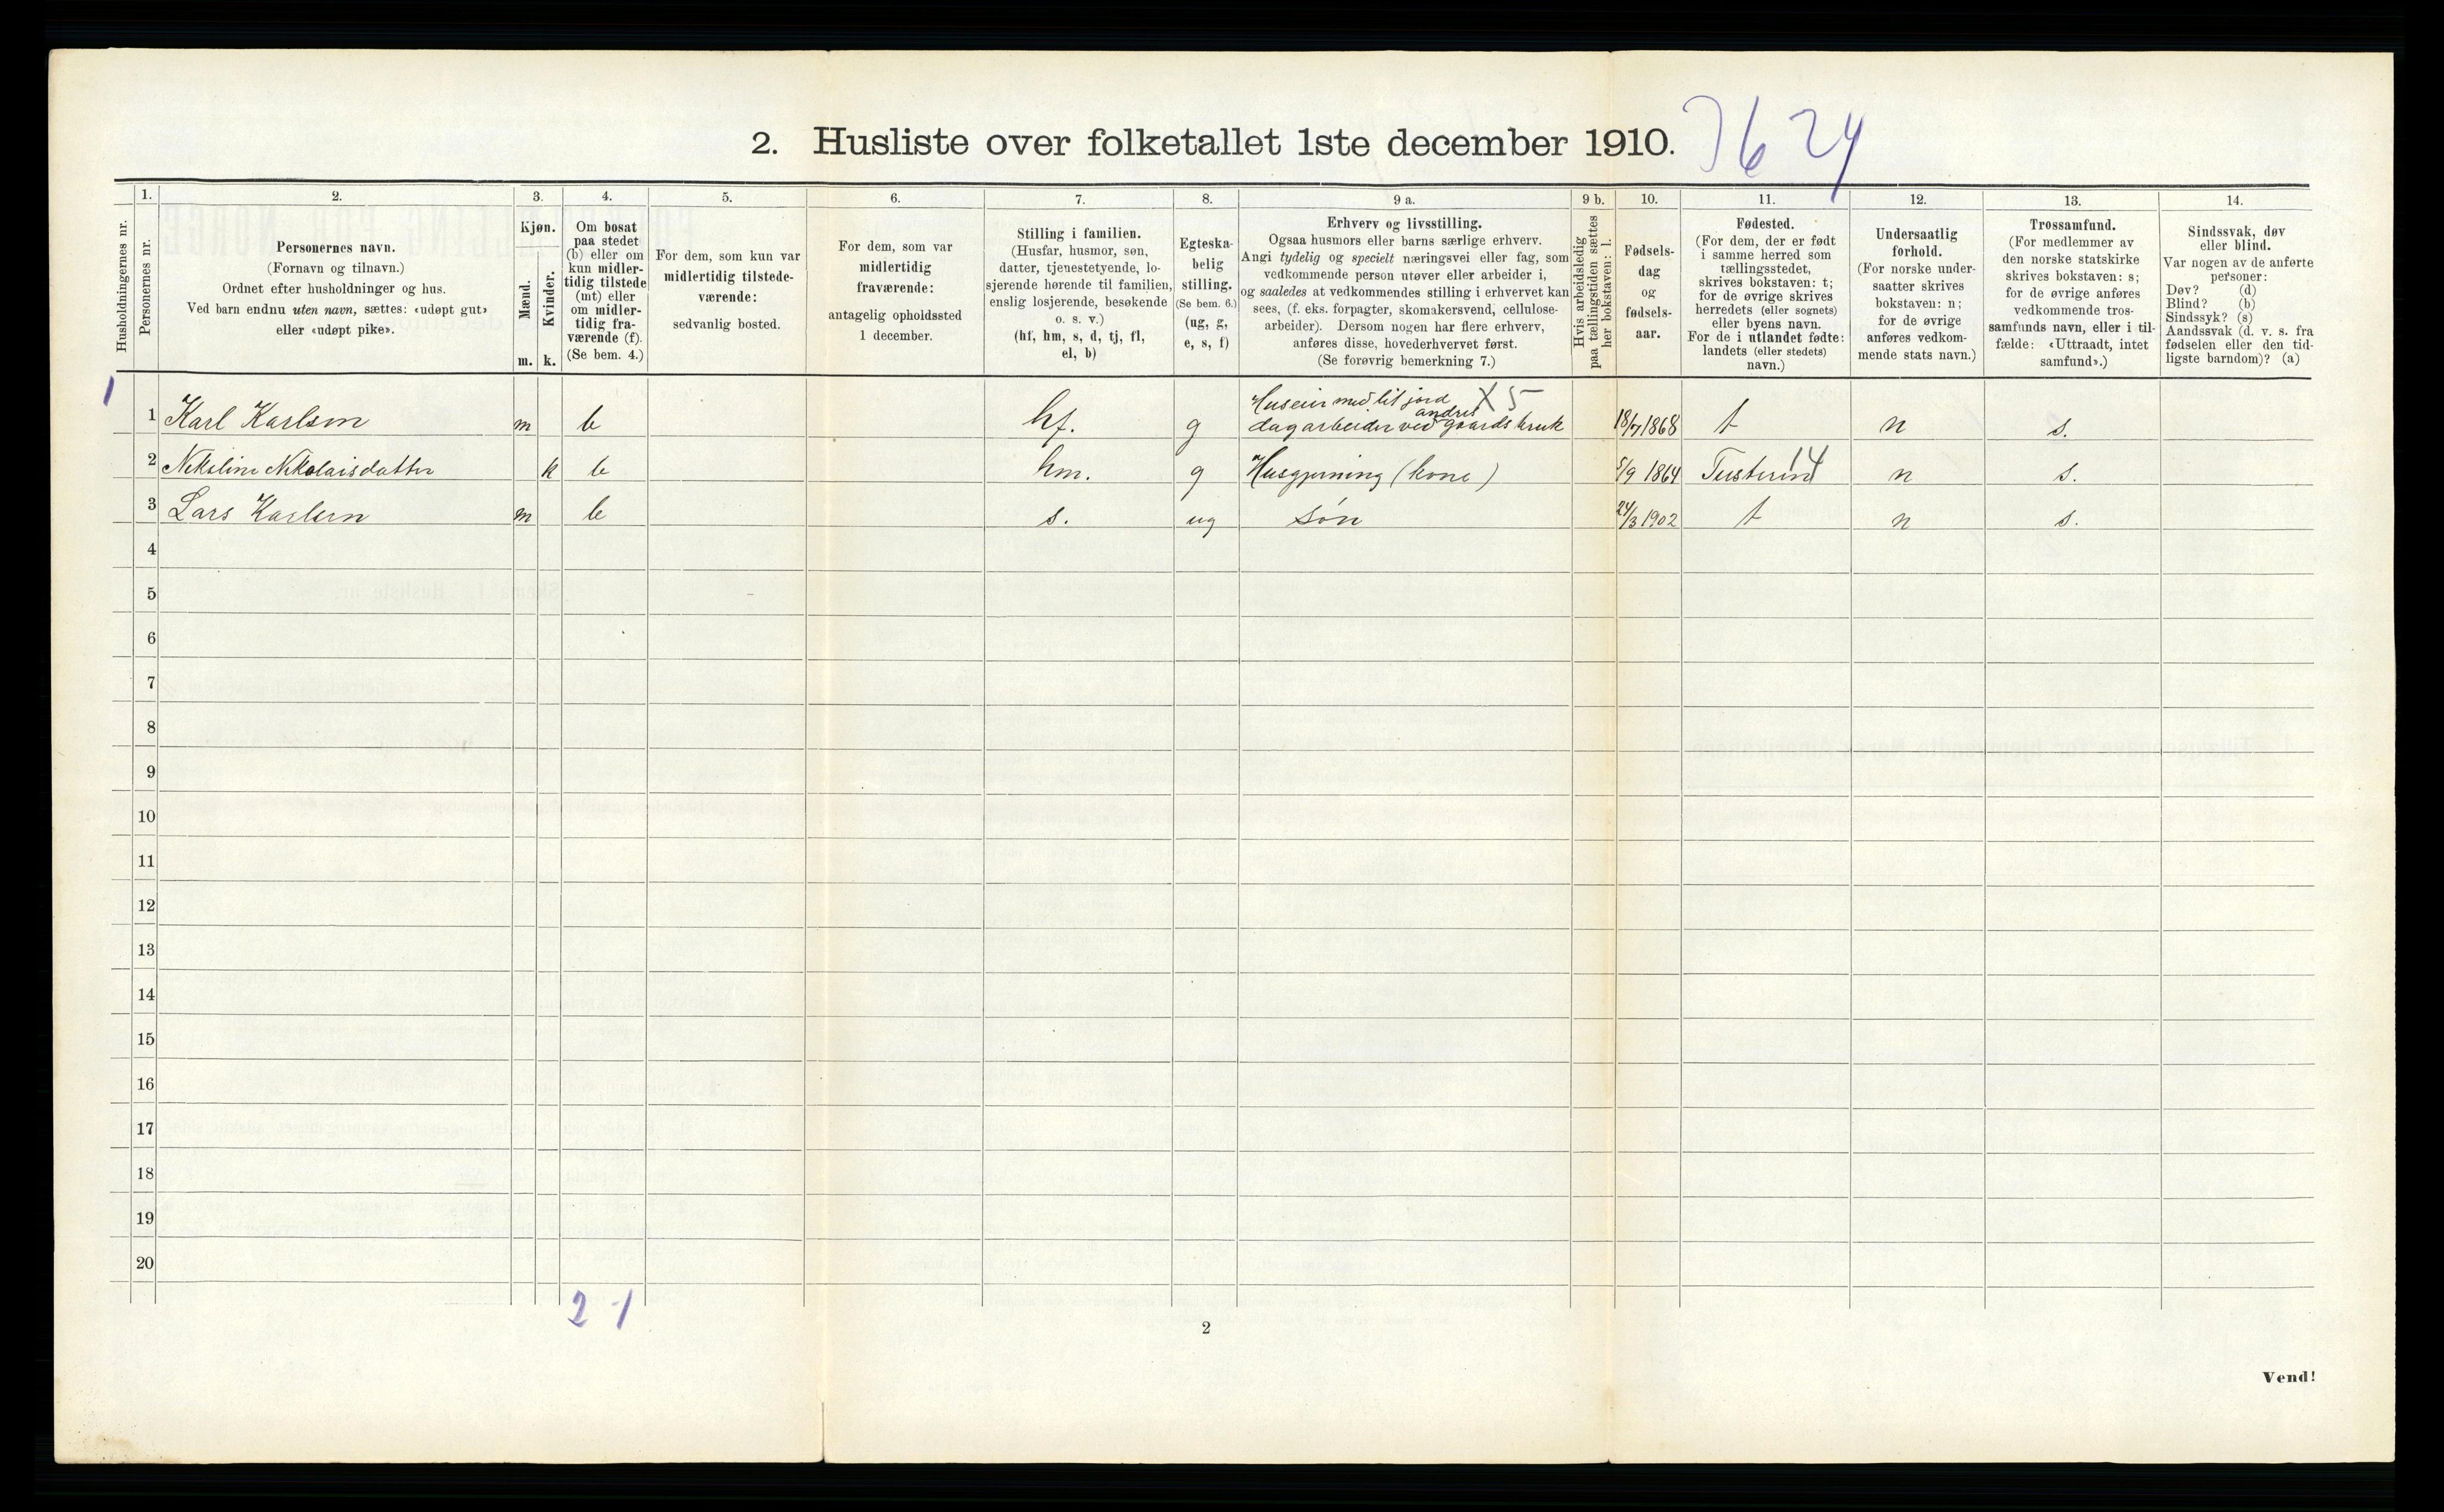 2. Husliste over folketallet 1ste december 1910. 3624
Husholdningernes nr.
1.
Personernes nr.
2.
Personernes navn.
(Fornavn og tilnavn.)
Ordnet efter husholdninger og hus.
Ved barn endnu uten navn, sættes: «udøpt gut»
eller «udøpt pike».
3.
Kjøn.
Mænd.
m.
Kvinder.
k.
4.
Om bosat
paa stedet
(b) eller om
kun midler-
tidig tilstede
(mt) eller
om midler-
tidig fra-
værende (f).
(Se bem. 4.)
5.
For dem, som kun var
midlertidig tilstede-
værende:
sedvanlig bosted.
6.
For dem, som var
midlertidig
fraværende:
antagelig opholdssted
1 december.
7.
Stilling i familien.
(Husfar, husmor, søn,
datter, tjenestetyende, lo-
sjerende hørende til familien,
enslig losjerende, besøkende
o. s. v.)
(hf, hm, s, d, tj, fl,
el, b)
8.
Egteska-
belig
stilling.
(Se bem. 6.)
(ug, g,
e, s, f)
9 a.
Erhverv og livsstilling.
Ogsaa husmors eller barns særlige erhverv.
Angi tydelig og specielt næringsvei eller fag, som
vedkommende person utøver eller arbeider i,
og saaledes at vedkommendes stilling i erhvervet kan
sees, (f. eks. forpagter, skomakersvend, cellulose-
arbeider). Dersom nogen har flere erhverv,
anføres disse, hovederhvervet først.
(Se forøvrig bemerkning 7.)
9 b.
Hvis arbeidsledig
paa tællingstiden sættes
her bokstaven: l.
10.
Fødsels-
dag
og
fødsels-
aar.
11.
Fødested.
(For dem, der er født
i samme herred som
tællingsstedet,
skrives bokstaven: t;
for de øvrige skrives
herredets (eller sognets)
eller byens navn.
For de i utlandet fødte:
landets (eller stedets)
navn.)
12.
Undersaatlig
forhold.
(For norske under-
saatter skrives
bokstaven: n;
for de øvrige
anføres vedkom-
mende stats navn.)
13.
Trossamfund.
(For medlemmer av
den norske statskirke
skrives bokstaven: s;
for de øvrige anføres
vedkommende tros-
samfunds navn, eller i til-
fælde: «Uttraadt, intet
samfund».)
14.
Sindssvak, døv
eller blind.
Var nogen av de anførte
personer:
Døv? (d)
Blind? (b)
Sindssyk? (s)
Aandssvak (d. v. s. fra
fødselen eller den tid-
ligste barndom)? (a)
1
Huseier med lit jord X 5
andres
1 Karl Karlsen m b hf. g dagarbeider ved gaardsbruk 18/7 1868 t n s.
2 Nikoline Nikolaisdatter k b hm. g Husgjerning (kone) 5/9 1864 Tusteren 14 n s.
3 Lars Karlsen m b s. ug søn 24/3 1902 t n s.
4
5
6
7
8
9
10
11
12
13
14
15
16
17
18
19
20
2-1
2
Vend!